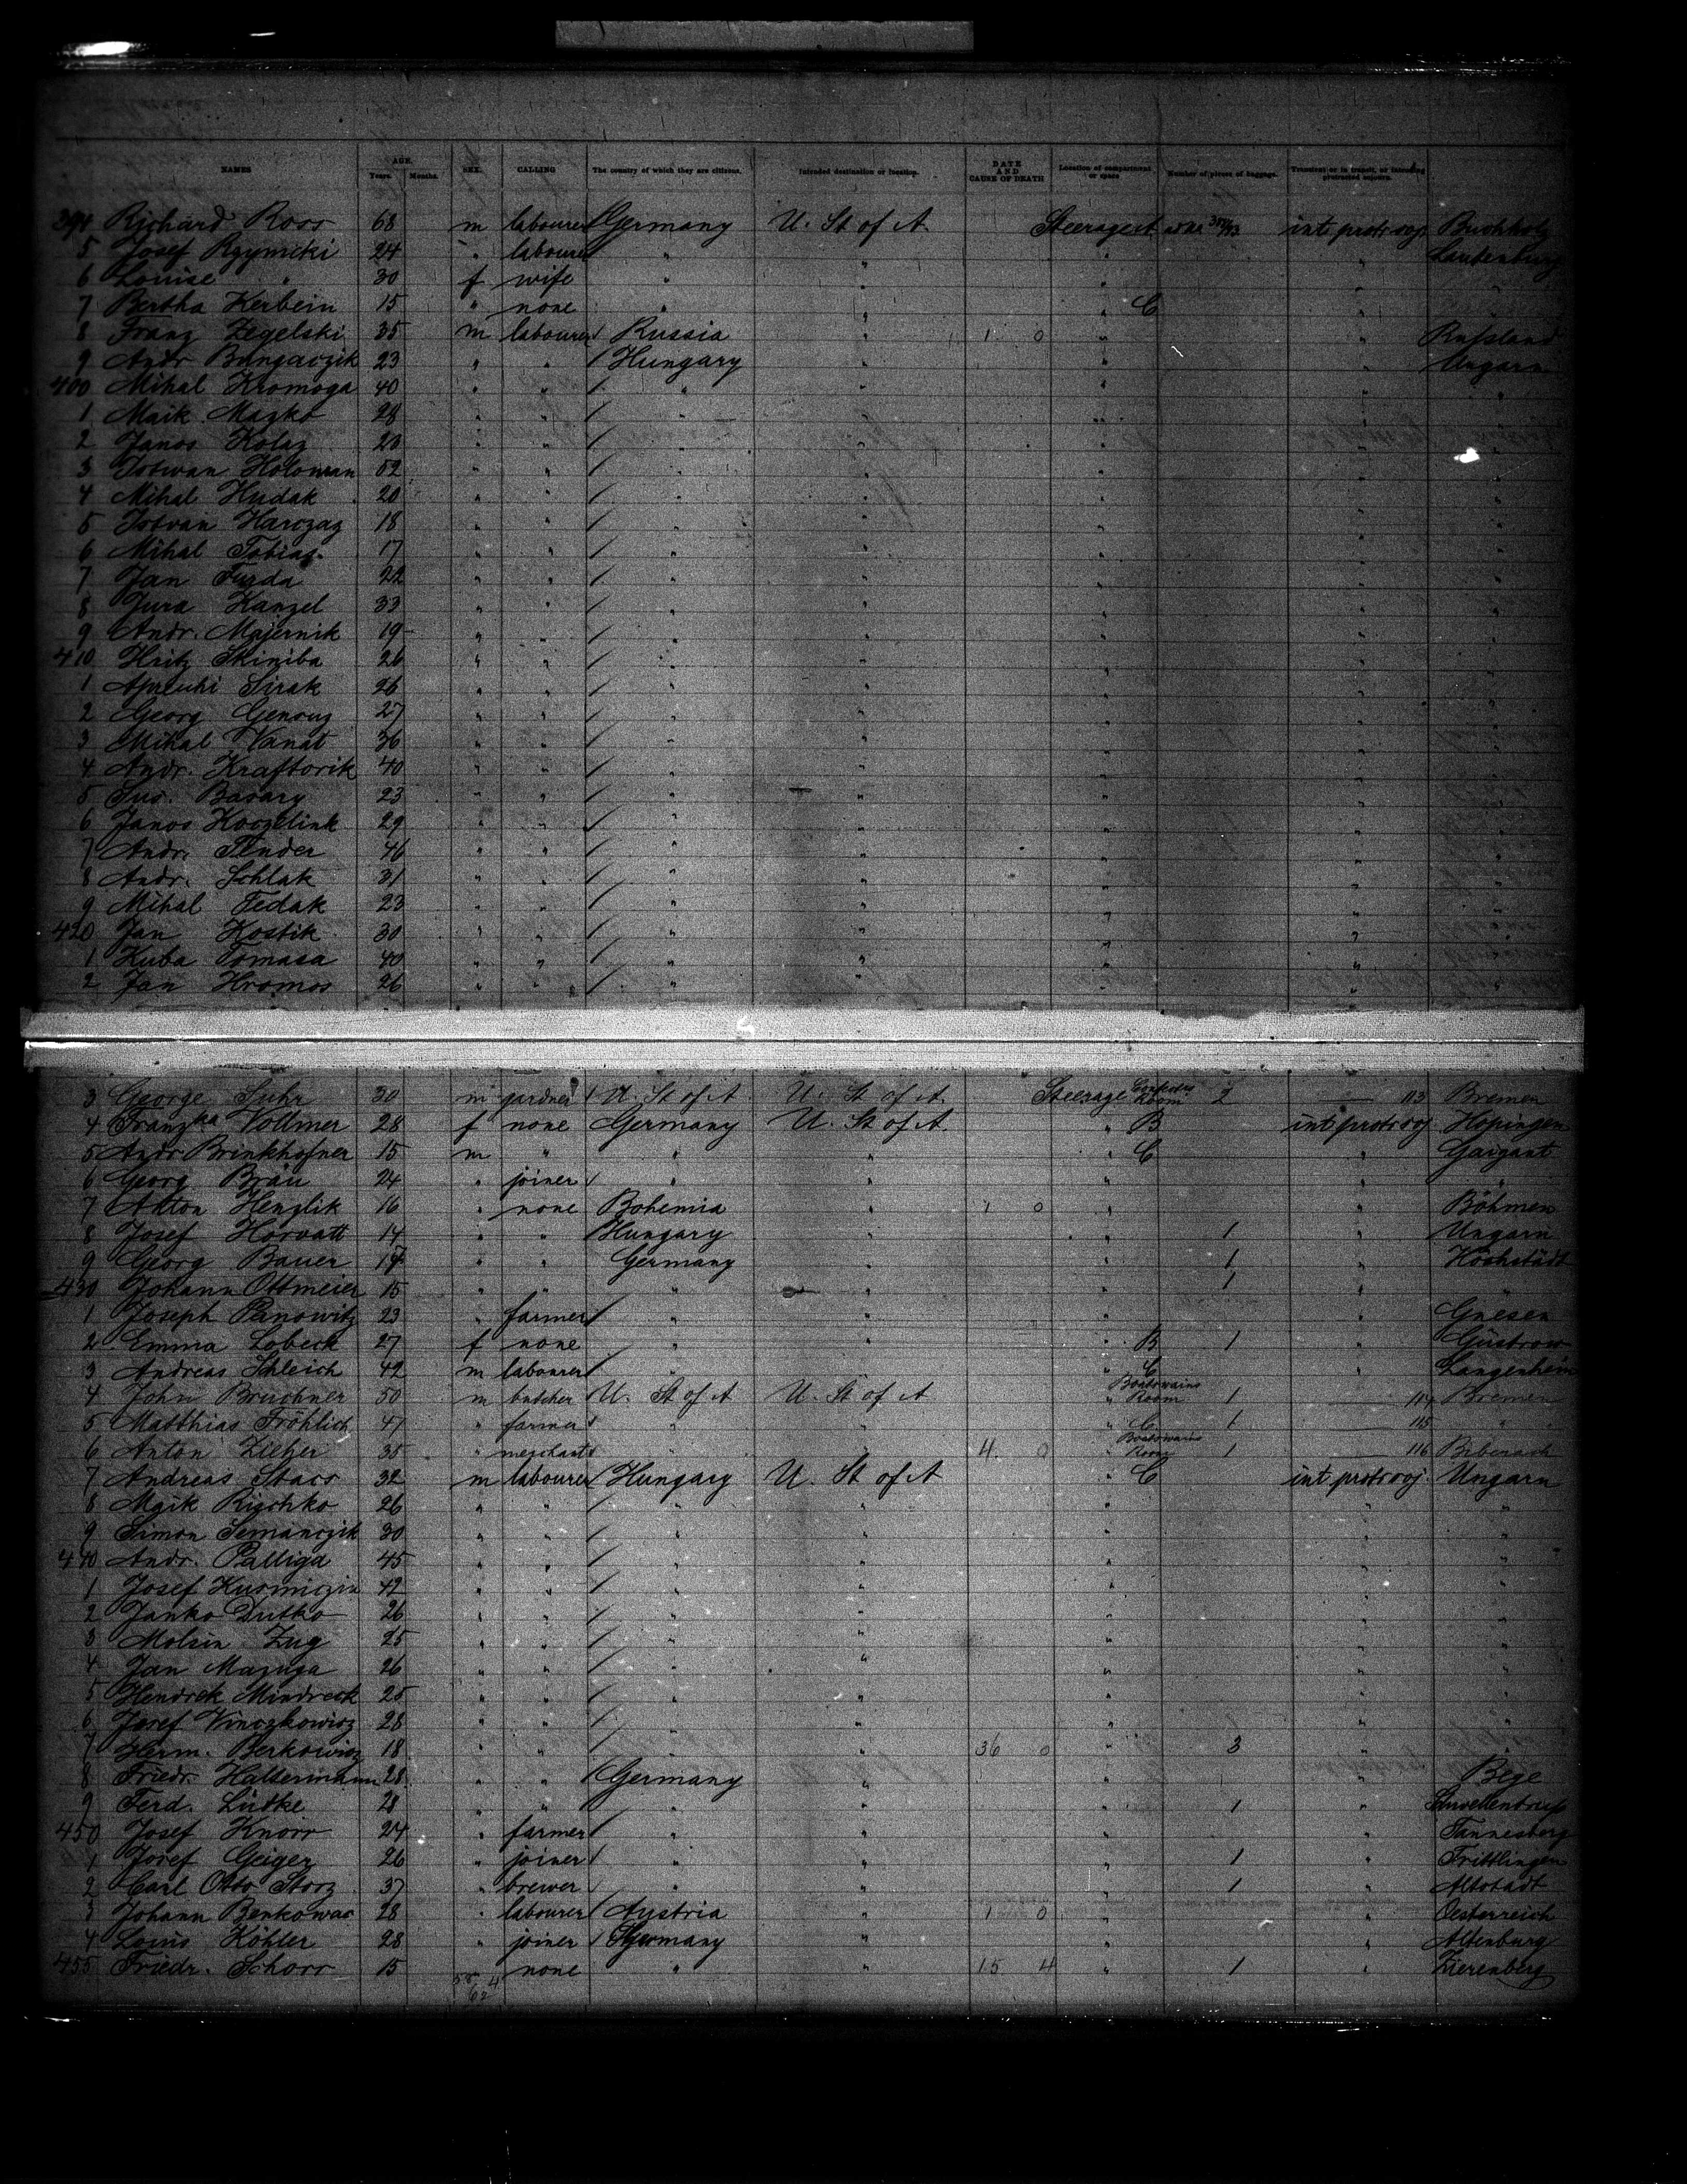 NAMES AGE. Years. Months. SEX. CALLING The country of which they are citizens. Intended destination or location. DATE AND CAUSE OF DEATH Location of compartment or space Number of pieces of baggage. Transient or in transit, or intending protracted sojourn.
394 Richard Ross 68 m labourer Germany U. St of A. Steerage int protr soj Buchholz
5 Josef Rzymicki 24 " labourer " " " " Lautenburg
6 Louise " 30 f wife " " " "
7 Bertha Kerbein 15 " none " " " C "
8 Franz Zegelski 35 m labourer Russia " 1 0 " " Rußland
9 Andr Bungaczik 23 " " Hungary " " " Ungarn
400 Mihal Kromoga 40 " " " " " " "
1 Maik Mazko 28 " " " " " " "
2 Janos Kolaz 23 " " " " " " "
3 Istwan Holoman 52 " " " " " " "
4 Mihal Hudak 20 " " " " " " "
5 Istvan Harczaz 18 " " " " " " "
6 Mihal Tobias 17 " " " " " " "
7 Jan Furda 22 " " " " " " "
8 Jura Kanzel 33 " " " " " " "
9 Andr. Majernik 19 " " " " " " "
410 Hritz Skiniba 26 " " " " " " "
1 Sirak 26 " " " " " " "
2 Georg 27 " " " " " " "
3 Mihal Vanat 36 " " " " " " "
4 Andr. Kraftorik 40 " " " " " " "
5 Basary 23 " " " " " " "
6 Janos Koczelink 29 " " " " " " "
7 Andr. 46 " " " " " " "
8 Andr. Schlak 31 " " " " " " "
9 Mihal Fedak 23 " " " " " " "
420 Jan Kostik 30 " " " " " " "
1 Kuba Tomasa 40 " " " " " " "
2 Jan Hromos 26 " " " " " " "
3 George Suhr 30 m gardner U. St of A U. St of A. Steerage Room 2 113 Bremen
4 Franzka Vollmer 28 f none Germany U. St of A. " B int protr soj Hopingen
5 Andr Brinkhofner 15 m " " " " C " Gaigant
6 Georg Bräu 24 " joiner " " " " "
7 Anton Henzlik 16 " none Bohemia " 1 0 " " Böhmen
8 Josef Horvatt 14 " " Hungary " " 1 " Ungarn
9 Georg Bauer 17 " " Germany " " 1 " Höchstädt
430 Johann Ottmeier 15 " " " " " 1 " "
1 Joseph Panowitz 23 " farmer " " " " Gnesen
2 Emma Lobeck 27 f none " " " B 1 " Güstrow
3 Andreas Schleich 42 m labourer " " " C " Langenheim
4 John Bruchner 50 m butcher U. St of A U. St of A " Boatswains Room 1 114 Bremen
5 Matthias Fröhlich 47 " farmer " " " C 1 115 "
6 Anton Zieher 35 " merchant " " 4 0 Boatswains Room 1 116 Biberach
7 Andreas Stacs 32 m labourer Hungary U. St of A " C int protr soj. Ungarn
8 Maik Rischko 26 " " " " " " "
9 Simon Semanczik 30 " " " " " " "
440 Andr. Palliga 45 " " " " " " "
1 Josef Kusmiczin 42 " " " " " " "
2 Janko Dutko 26 " " " " " " "
3 Zug 25 " " " " " " "
4 Jan Mazuga 26 " " " " " " "
5 Hendrek Mindreck 25 " " " " " " "
6 Josef Vinczkowicz 28 " " " " " " "
7 Herm. Berkowicz 18 " " " " 36 0 " 3 " "
8 Friedr. Haltermann 28 " " Germany " " " Bege
9 Ferd. Lüdke 28 " " " " " 1 "
450 Josef Knorr 24 " farmer " " " " Tannesberg
1 Josef Geiger 26 " joiner " " " 1 " Frittlingen
2 Carl Otto Storz 37 " brewer " " " 1 " Altstadt
3 Johann Benkowac 28 " labourer Austria " 1 0 " " Oesterreich
4 Louis Köhler 28 " joiner Germany " " " Altenburg
455 Friedr. Schorr 15 " none " " 15 4 " 1 " Zierenberg
58 4
62